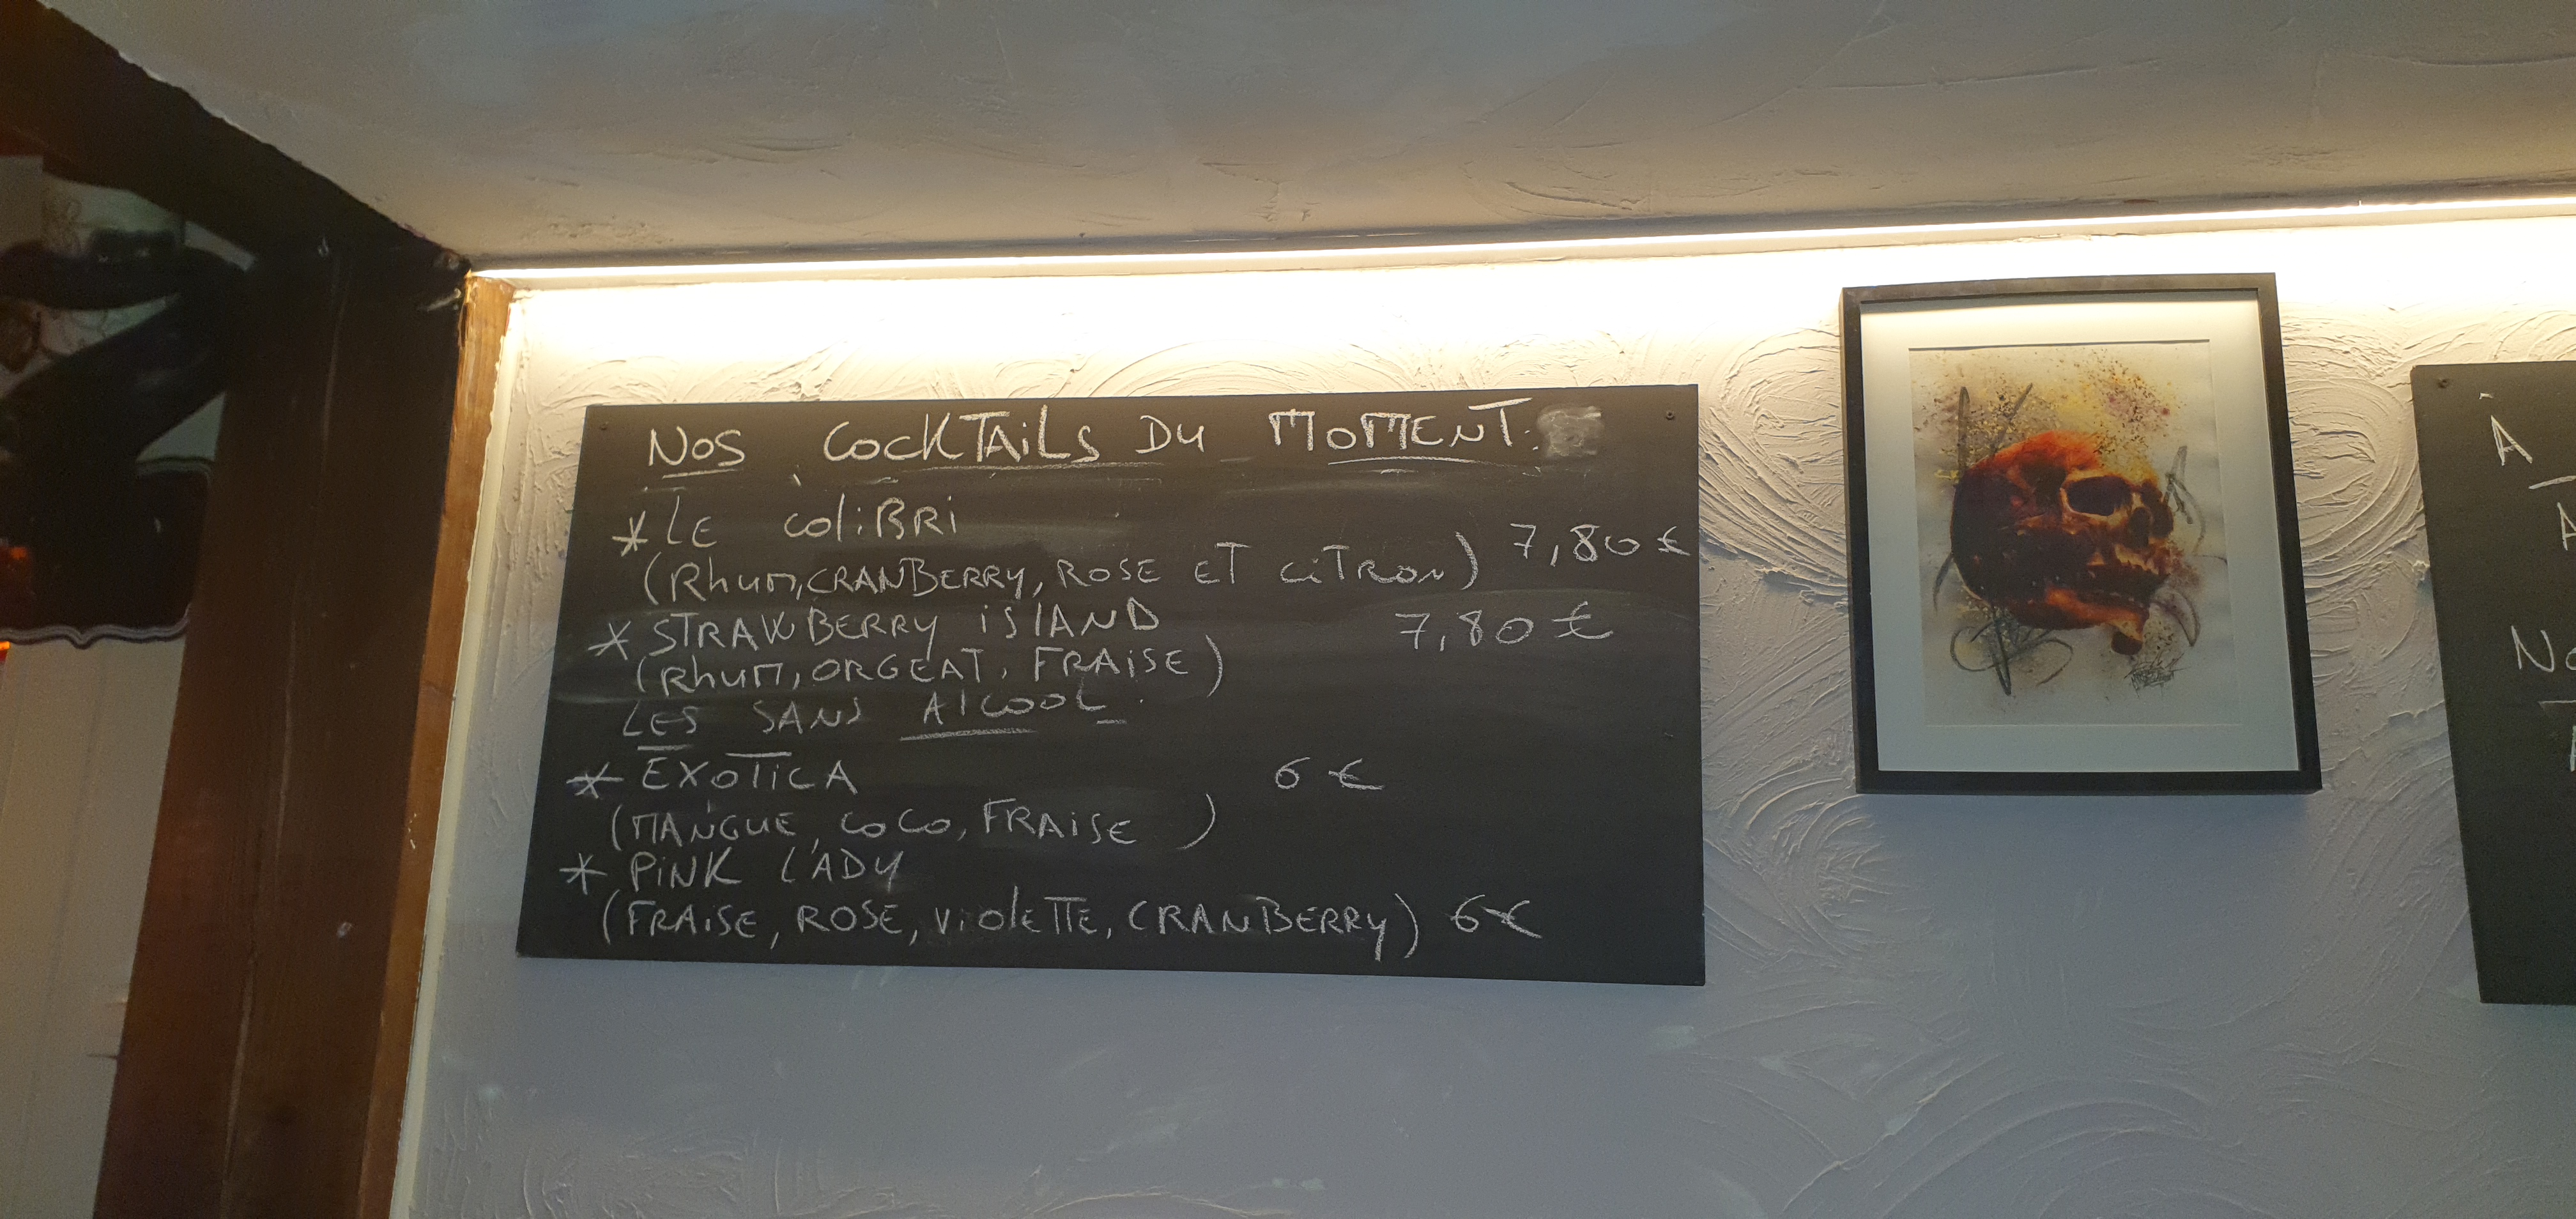 NOS COCKTAILS DU MOMENT:
* LE COLIBRI
(RHUM, CRANBERRY, ROSE ET CITRON) 7,80 €
* STRAWBERRY ISLAND 7,80 €
(RHUM, ORGEAT, FRAISE)
LES SANS ALCOOL
* EXOTICA 6 €
(MANGUE, COCO, FRAISE )
* PINK LADY
(FRAISE, ROSE, VIOLETTE, CRANBERRY) 6€
À